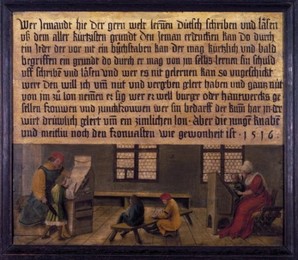 wer jemandt hie der gern welt lernen dütsch schriben und läsen
uß dem aller kürtzisten grundt den jeman erdencken kan do durch
ein jeder der vor nit ein büchstaben kan der mag kürtzlich und bald
begriffen ein grundt do durch er mag von jm selbs lernen sin schuld
uff schriben und läsen und wer es nit gelernen kan so ungeschickt
were den will ich um nüt und vergeben glert haben und gantz nüt
von jm zů lon nemen er syg wer er well burger ouch hantwercks ge
sellen frouwen und junckfrouwen wer sin bedarff der kum har jn der
wirt drüwlich glert um ein zimlichen lon · aber die junge knabē
und meitlin noch den fronvasten wie gewonheit ist · 1516 ·